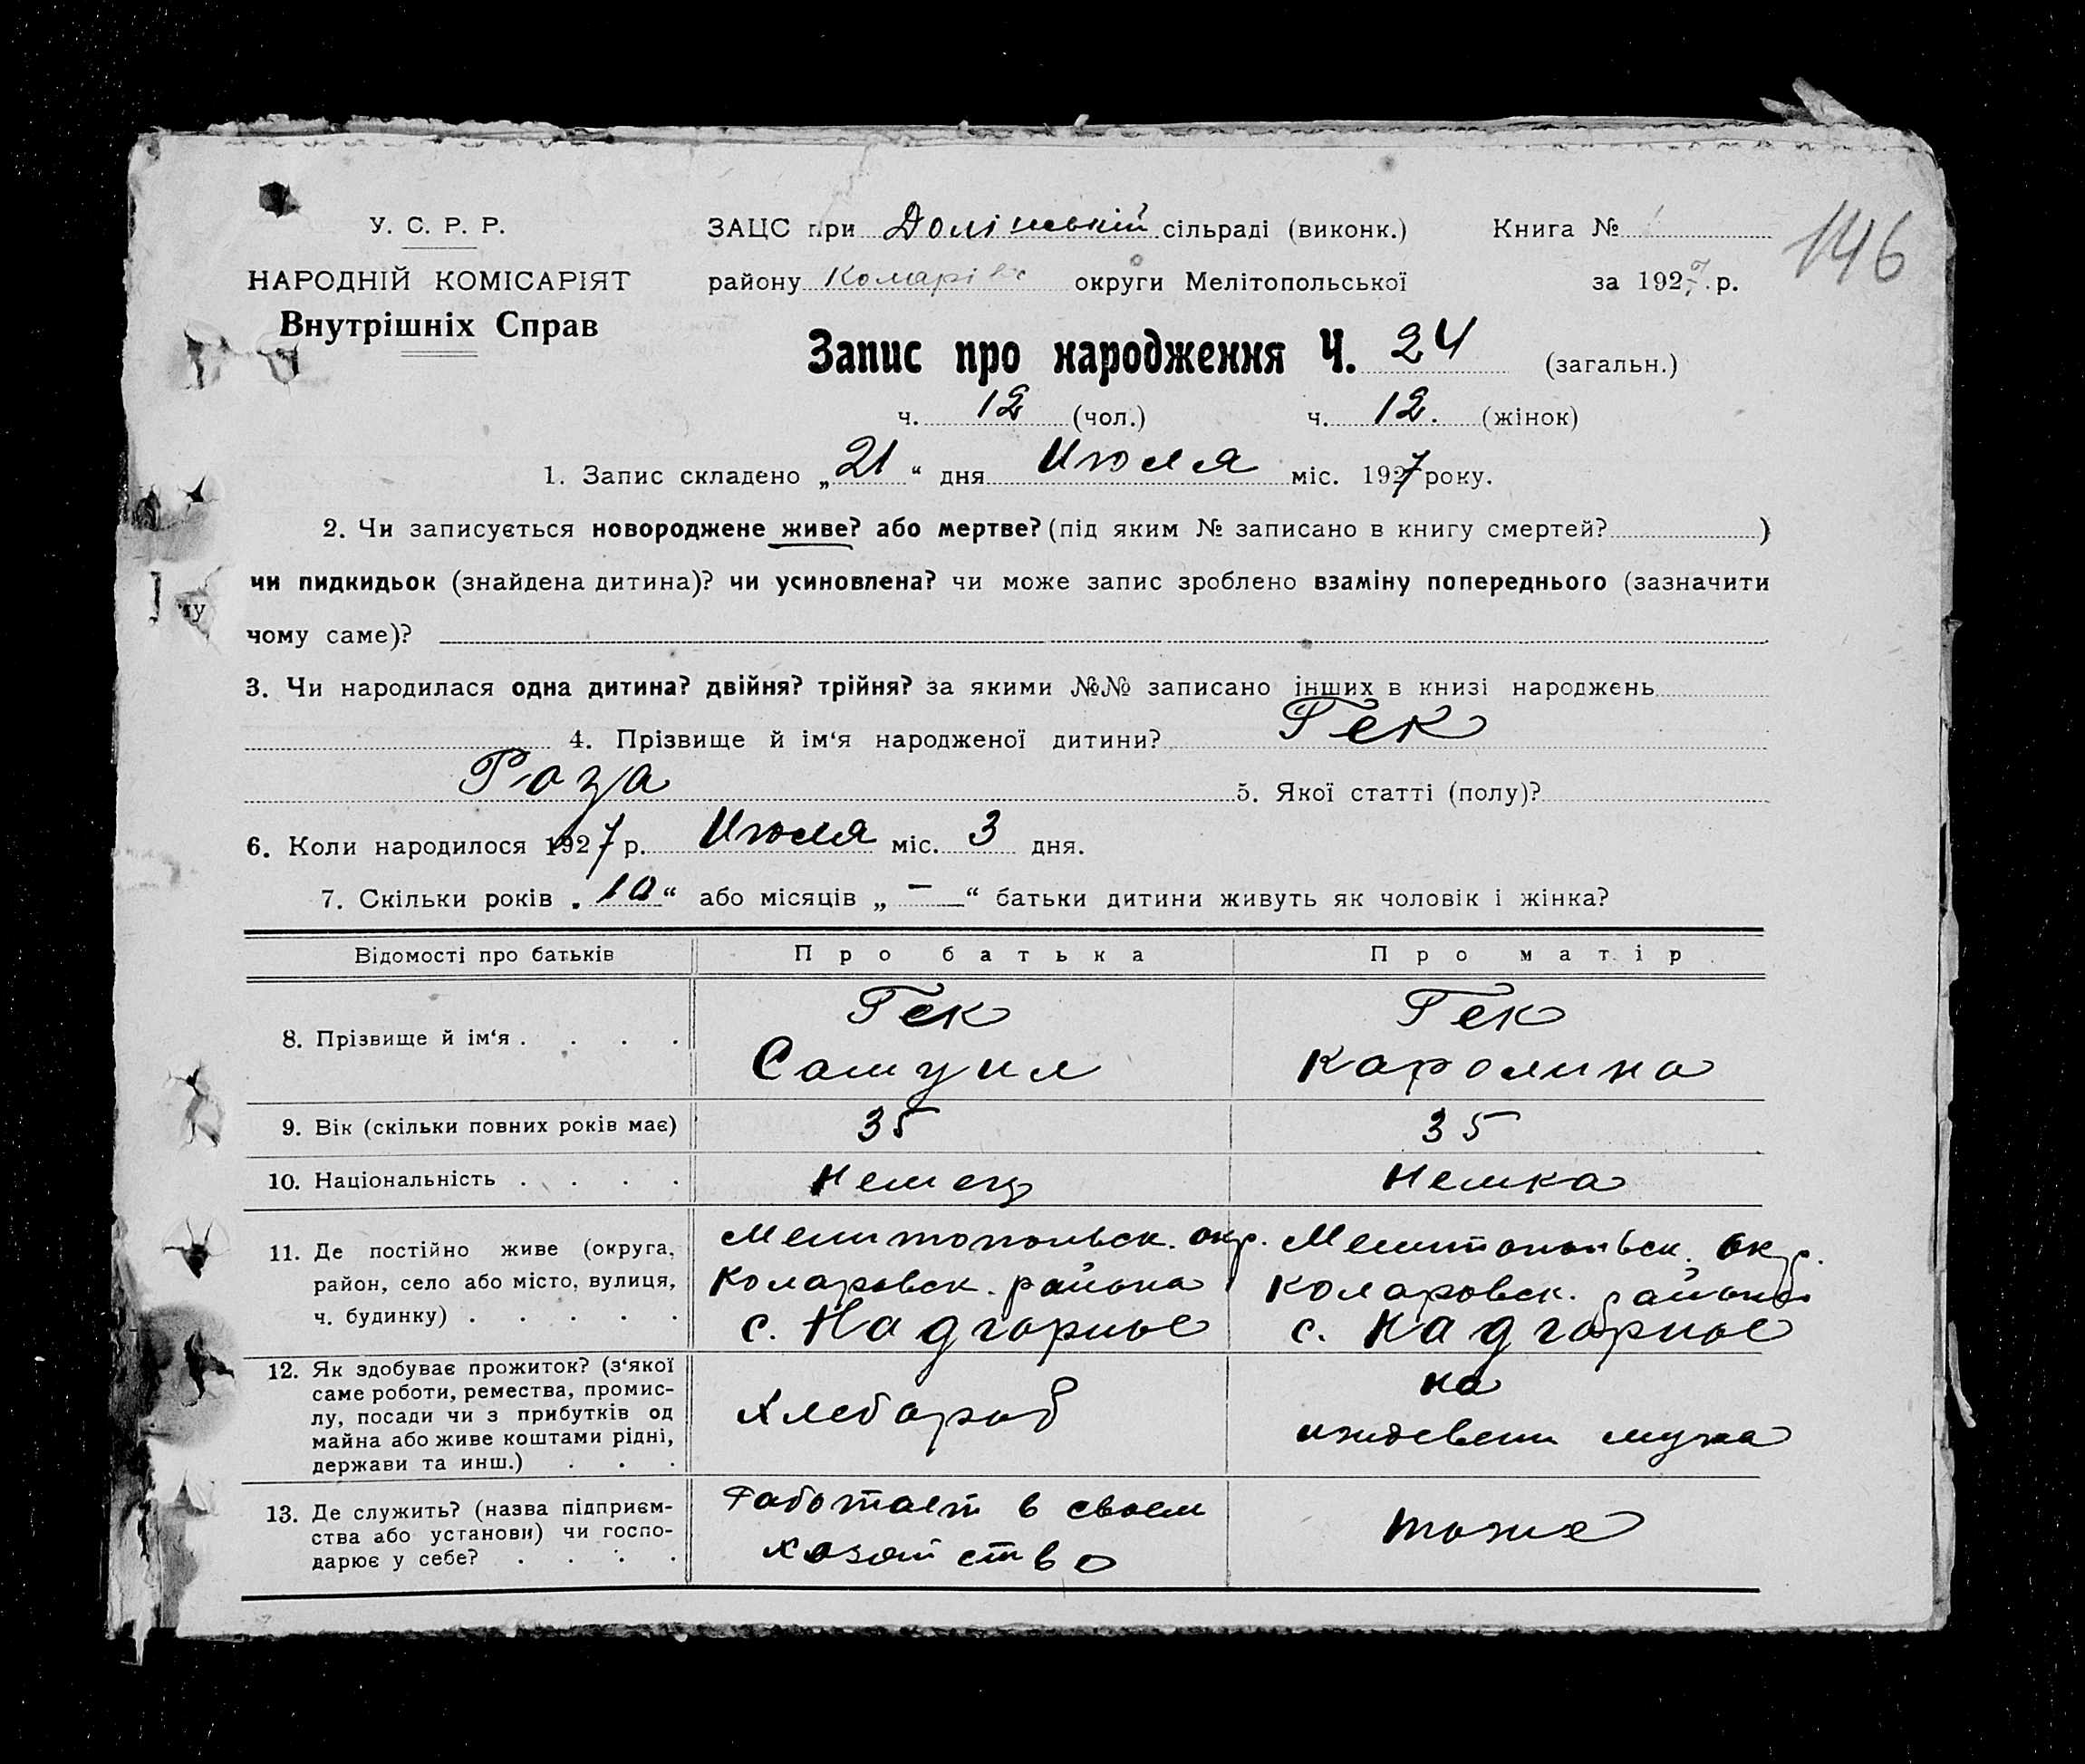 146
У. С. Р. Р.
НАРОДНІЙ КОМІСАРІЯТ
Внутрішніх Справ
ЗАЦС при Долінській сільраді (виконк.) Книга №
району округи Мелітопольської за 1927 р.
Запис про народження Ч. 24 (загальн.)
ч. 12 (чол.) ч. 12. (жінок)
1. Запис складено „21“ дня Июля міс. 1927 року.
2. Чи записується новороджене живе? або мертве? (під яким № записано в книгу смертей? )
чи пидкидьок (знайдена дитина)? чи усиновлена? чи може запис зроблено взаміну попереднього (зазначити
чому саме)?
3. Чи народилася одна дитина? двійня? трійня? за якими №№ записано інших в книзі народжень
4. Прізвище й ім‘я народженої дитини? Гек
Роза 5. Якої статті (полу)?
6. Коли народилося 1927 р. Июля міс. 3 дня.
7. Скільки років „10“ або місяців „—“ батьки дитини живуть як чоловік і жінка?
Відомості про батьків Про батька Про матір
8. Прізвище й ім‘я . . . . Гек Самуил Гек Каролина
9. Вік (скільки повних років має) 35 35
10. Національність . . . . Немец Немка
11. Де постійно живе (округа,
район, село або місто, вулиця,
ч. будинку) . . . . .
Мелитопольск. окр.
Коларовск. района
с. Надгорное
Мелитопольск. окр.
Коларовск. района
с. Надгорное
12. Як здобуває прожиток? (з‘якої
саме роботи, ремества, промис-
лу, посади чи з прибутків од
майна або живе коштами рідні,
держави та инш.) . . .
Хлебороб
на
иждевени мужа
13. Де служить? (назва підприєм-
ства або установи) чи госпо-
дарює у себе? . . . .
Работает в своем
хозяйство
тоже